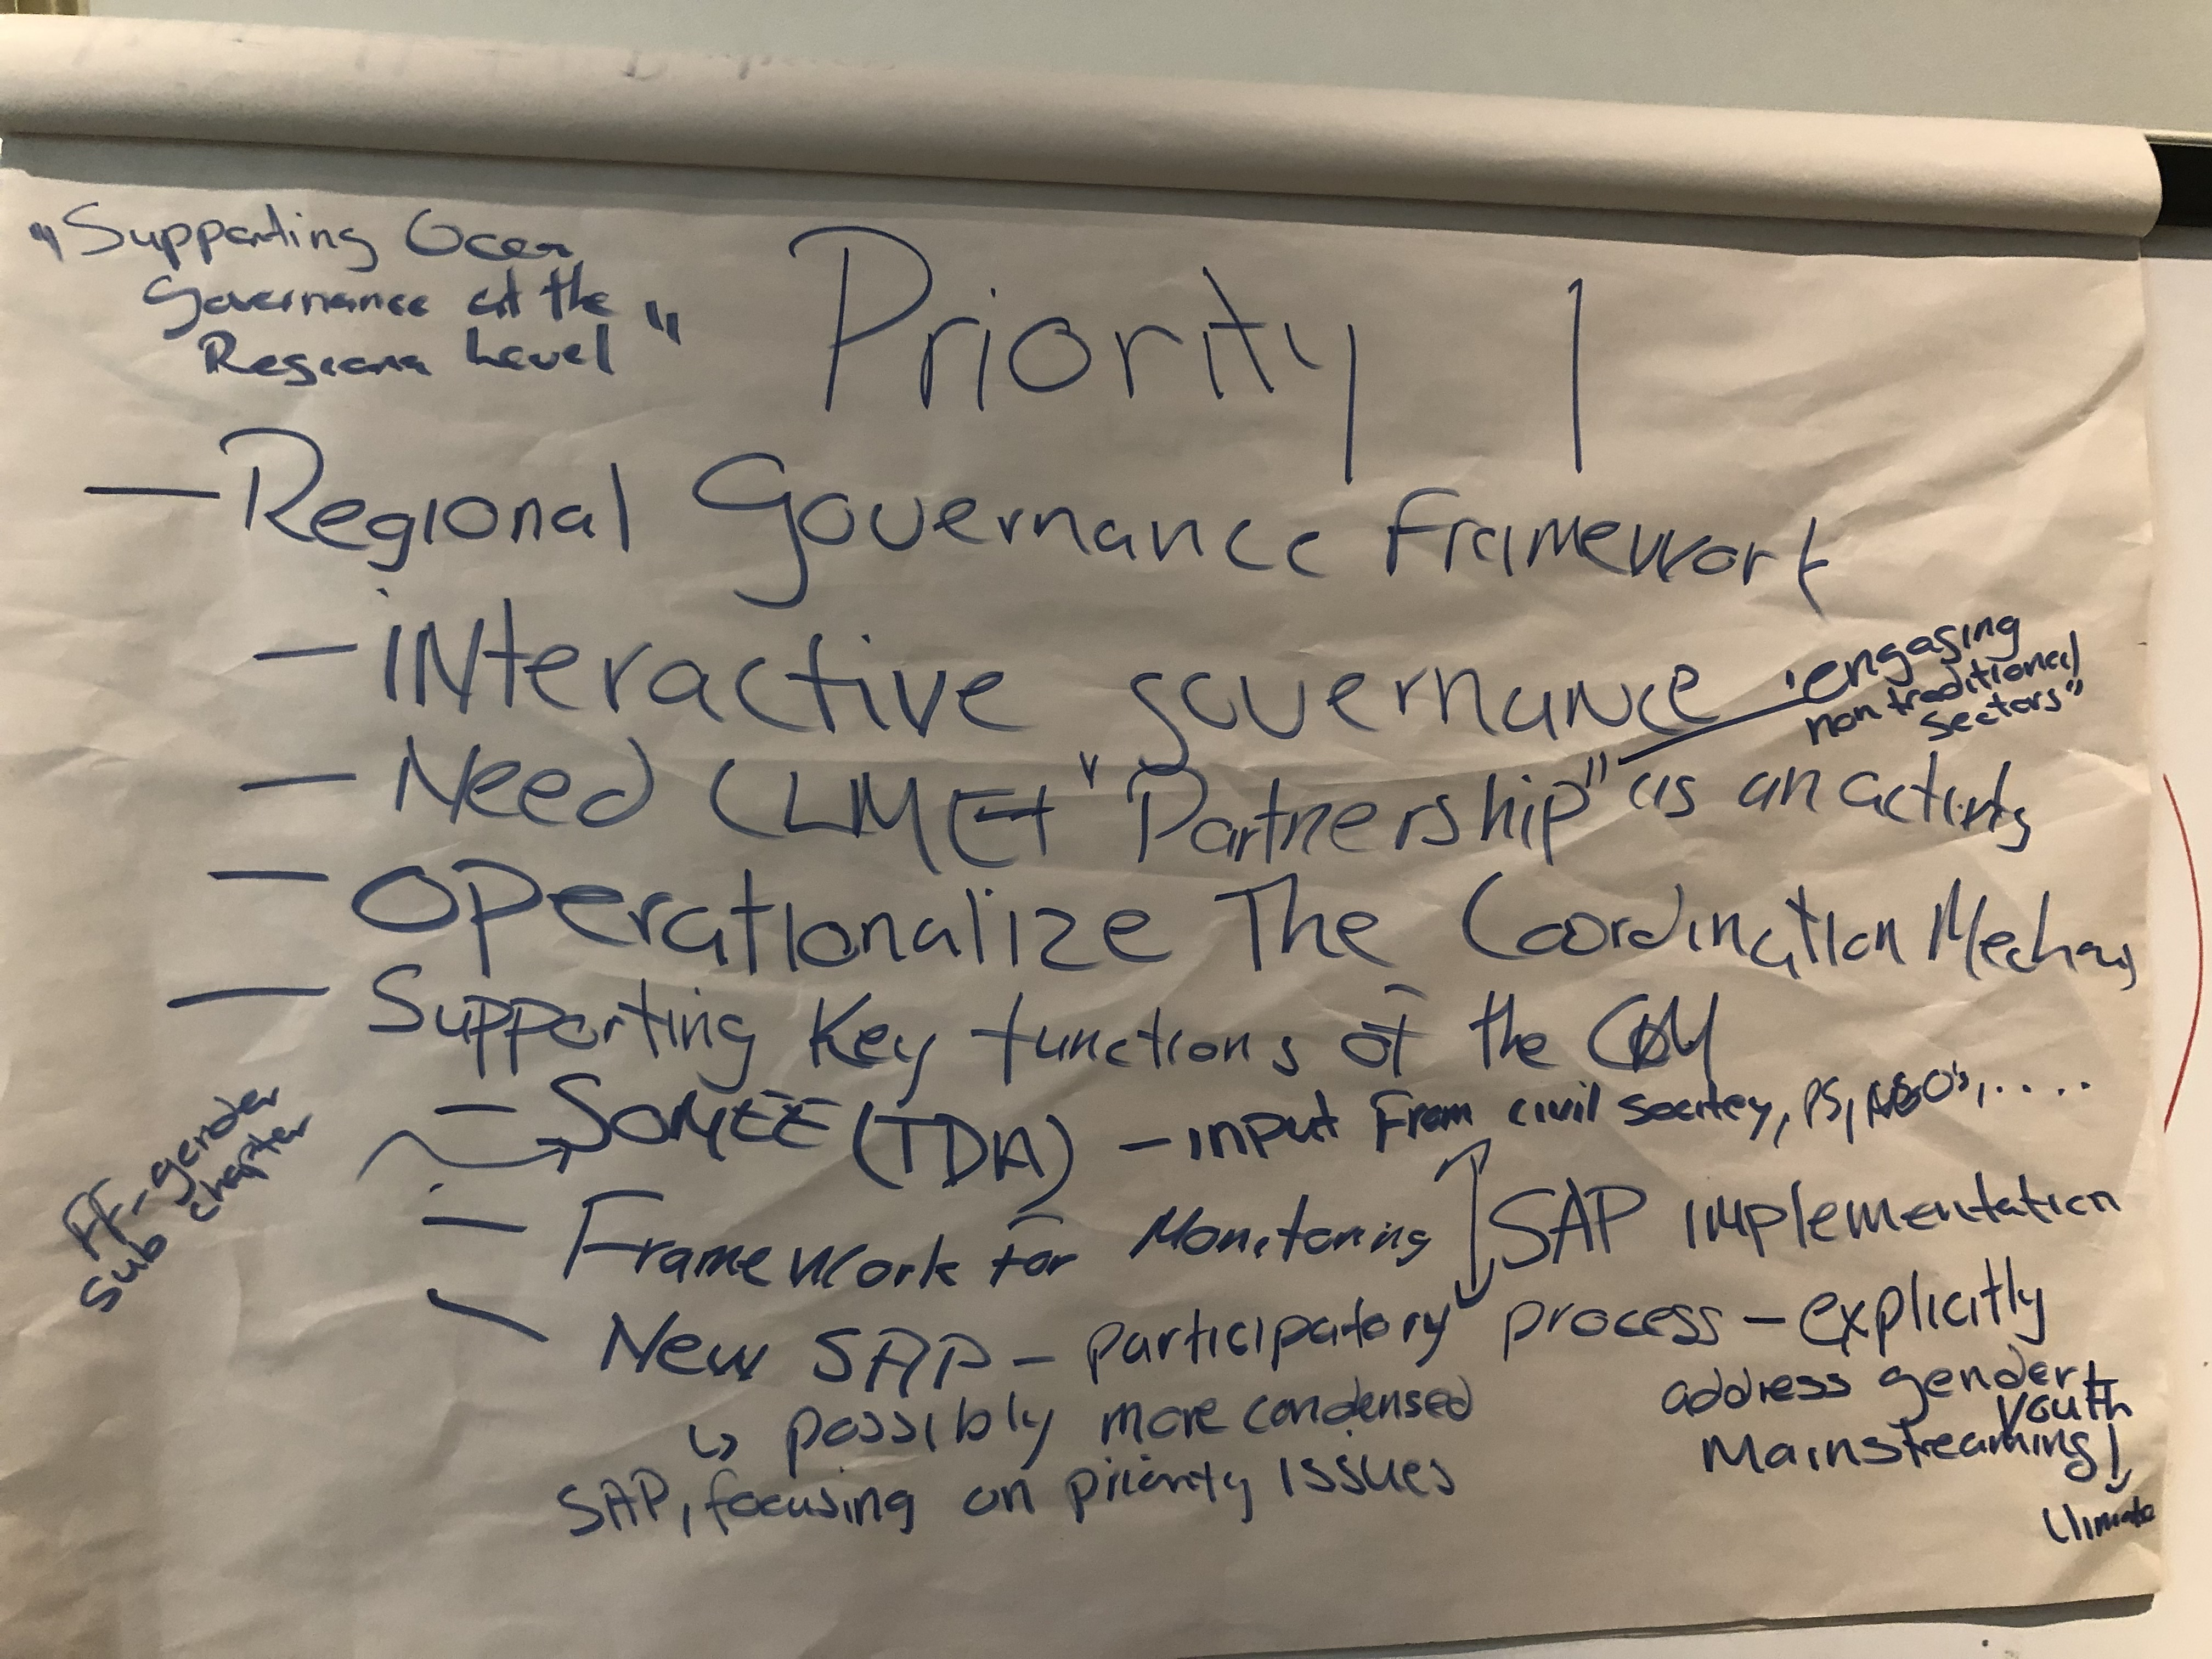 "Supporting Ocean
Governance at the
Regional Level"
Priority 1
— Regional Governance Framework
— interactive governance
"engaging
non traditional
sectors"
— Need CLME+ "Partnership" as an activity
— Operationalize The Coordination Mechanism
— Supporting Key functions of the CM
— SOMEE (TDA) — input From civil society, PS, NGO's, ....
FF-gender
sub chapter
— Framework for Monitoring SAP implementation
— New SAP — participatory process — explicitly
address gender +
Youth
Mainstreaming!
Climate
↳ possibly more condensed
SAP, focusing on priority issues